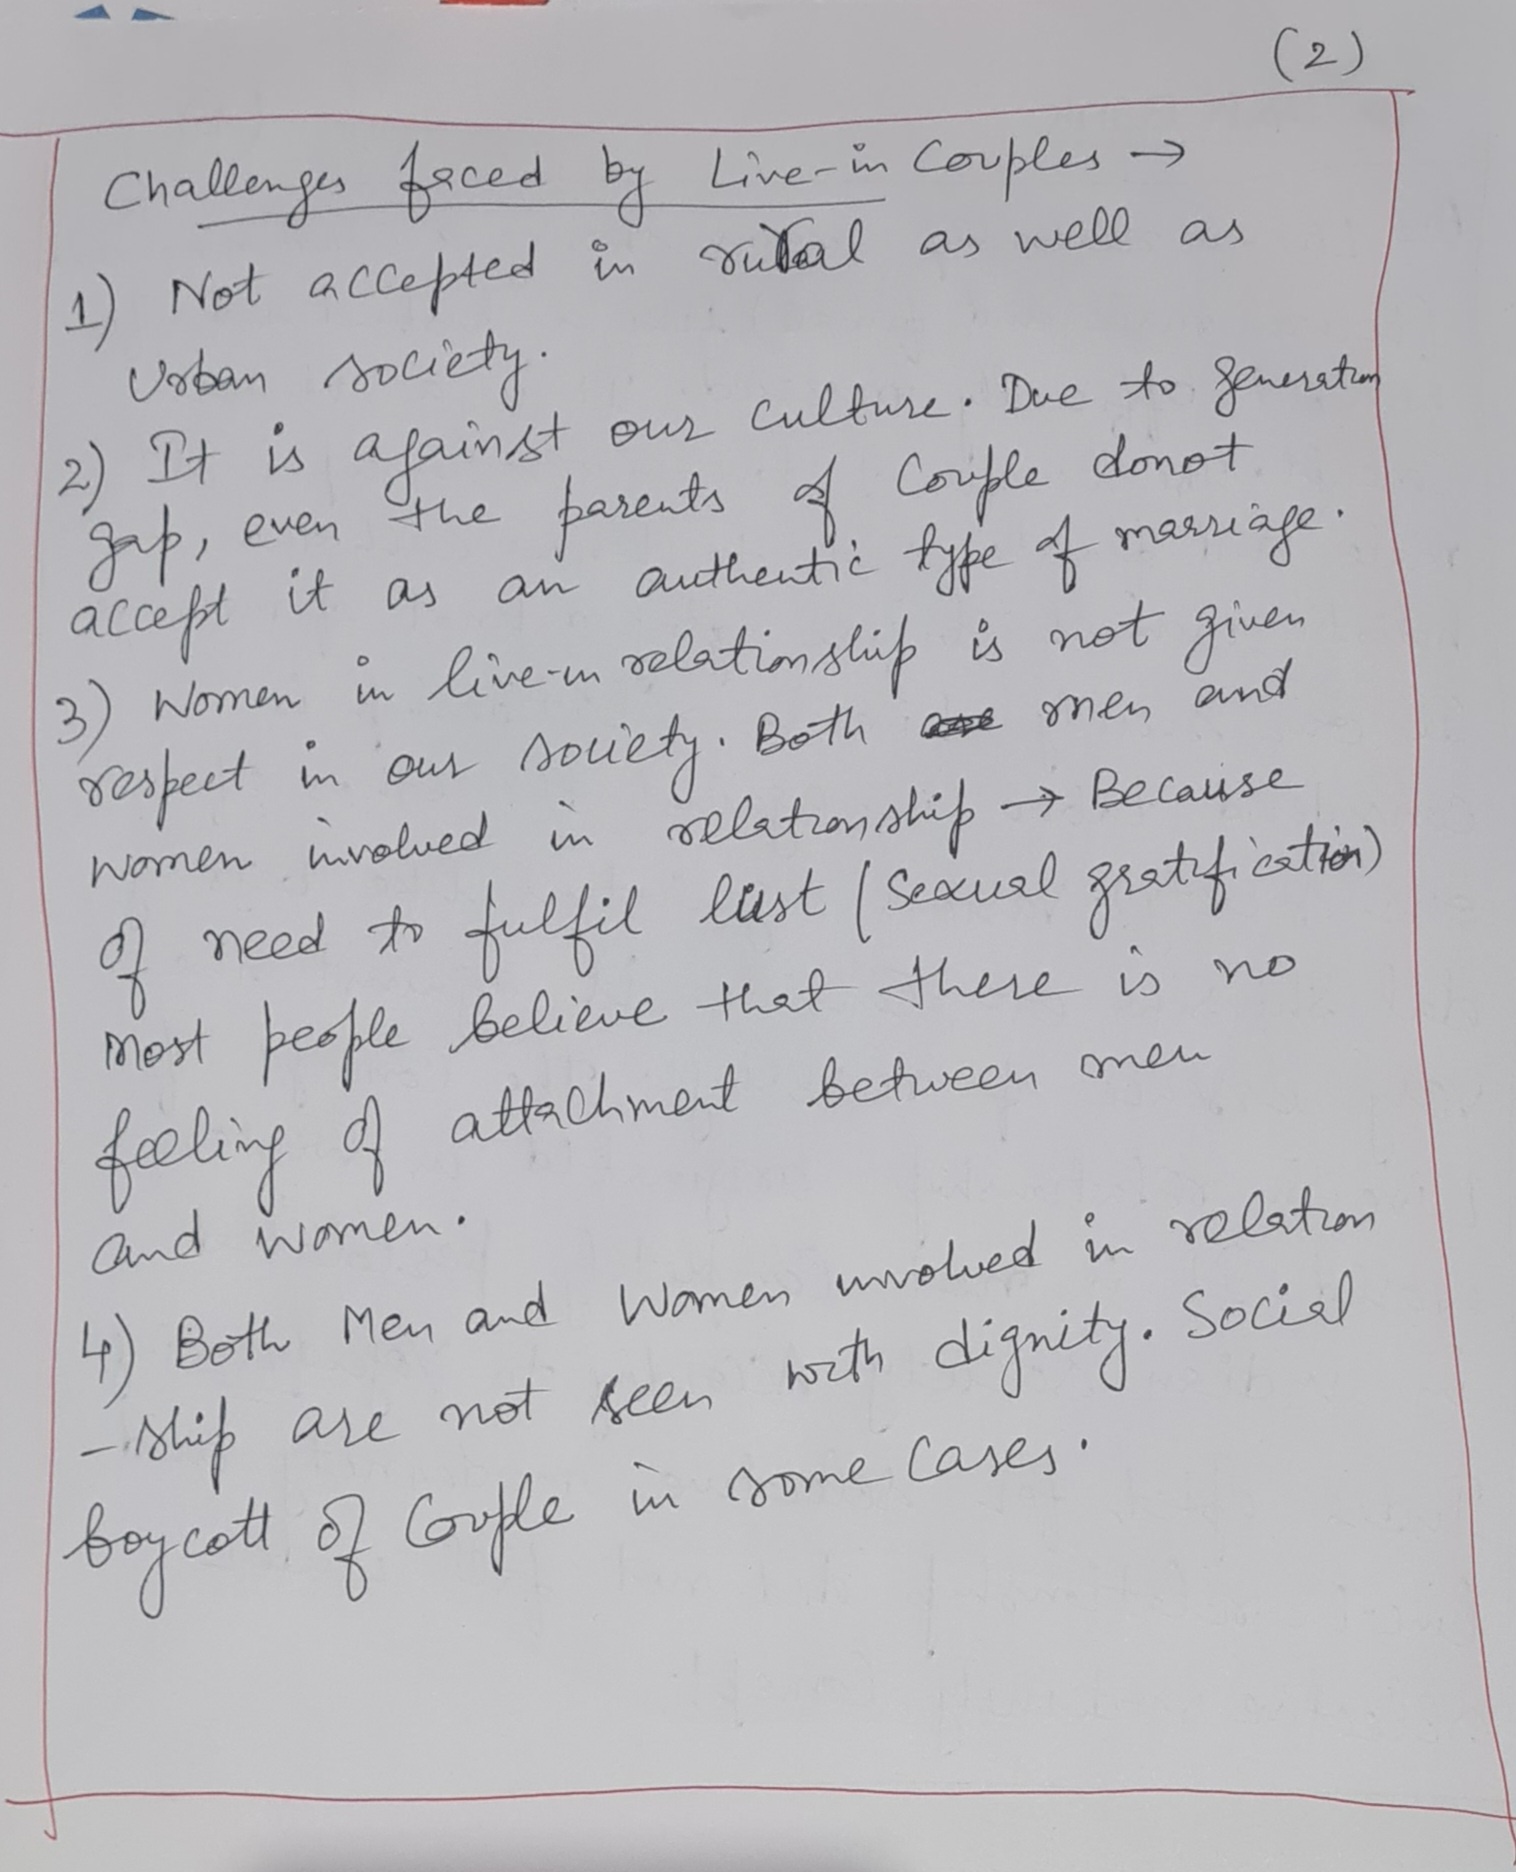 (2)
Challenges faced by Live-in Couples →
1) Not accepted in rural as well as
Urban society.
2) It is against our culture. Due to generation
gap, even the parents of Couple donot
accept it as an authentic type of marriage.
3) Women in live-in relationship is not given
respect in our society. Both men and
women involved in relationship → Because
of need to fulfil lust (Sexual gratification)
Most people believe that there is no
feeling of attachment between men
and women.
4) Both Men and Women involved in relation
-ship are not seen with dignity. Social
boycott of Couple in some Cases.